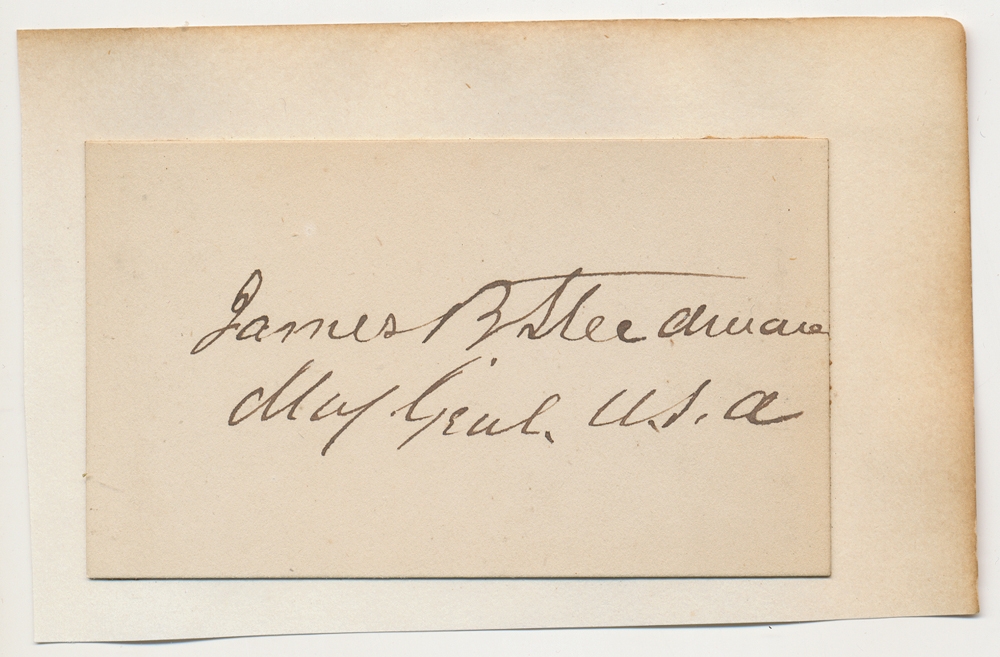 James B Steedman
Maj Genl. U.S.A